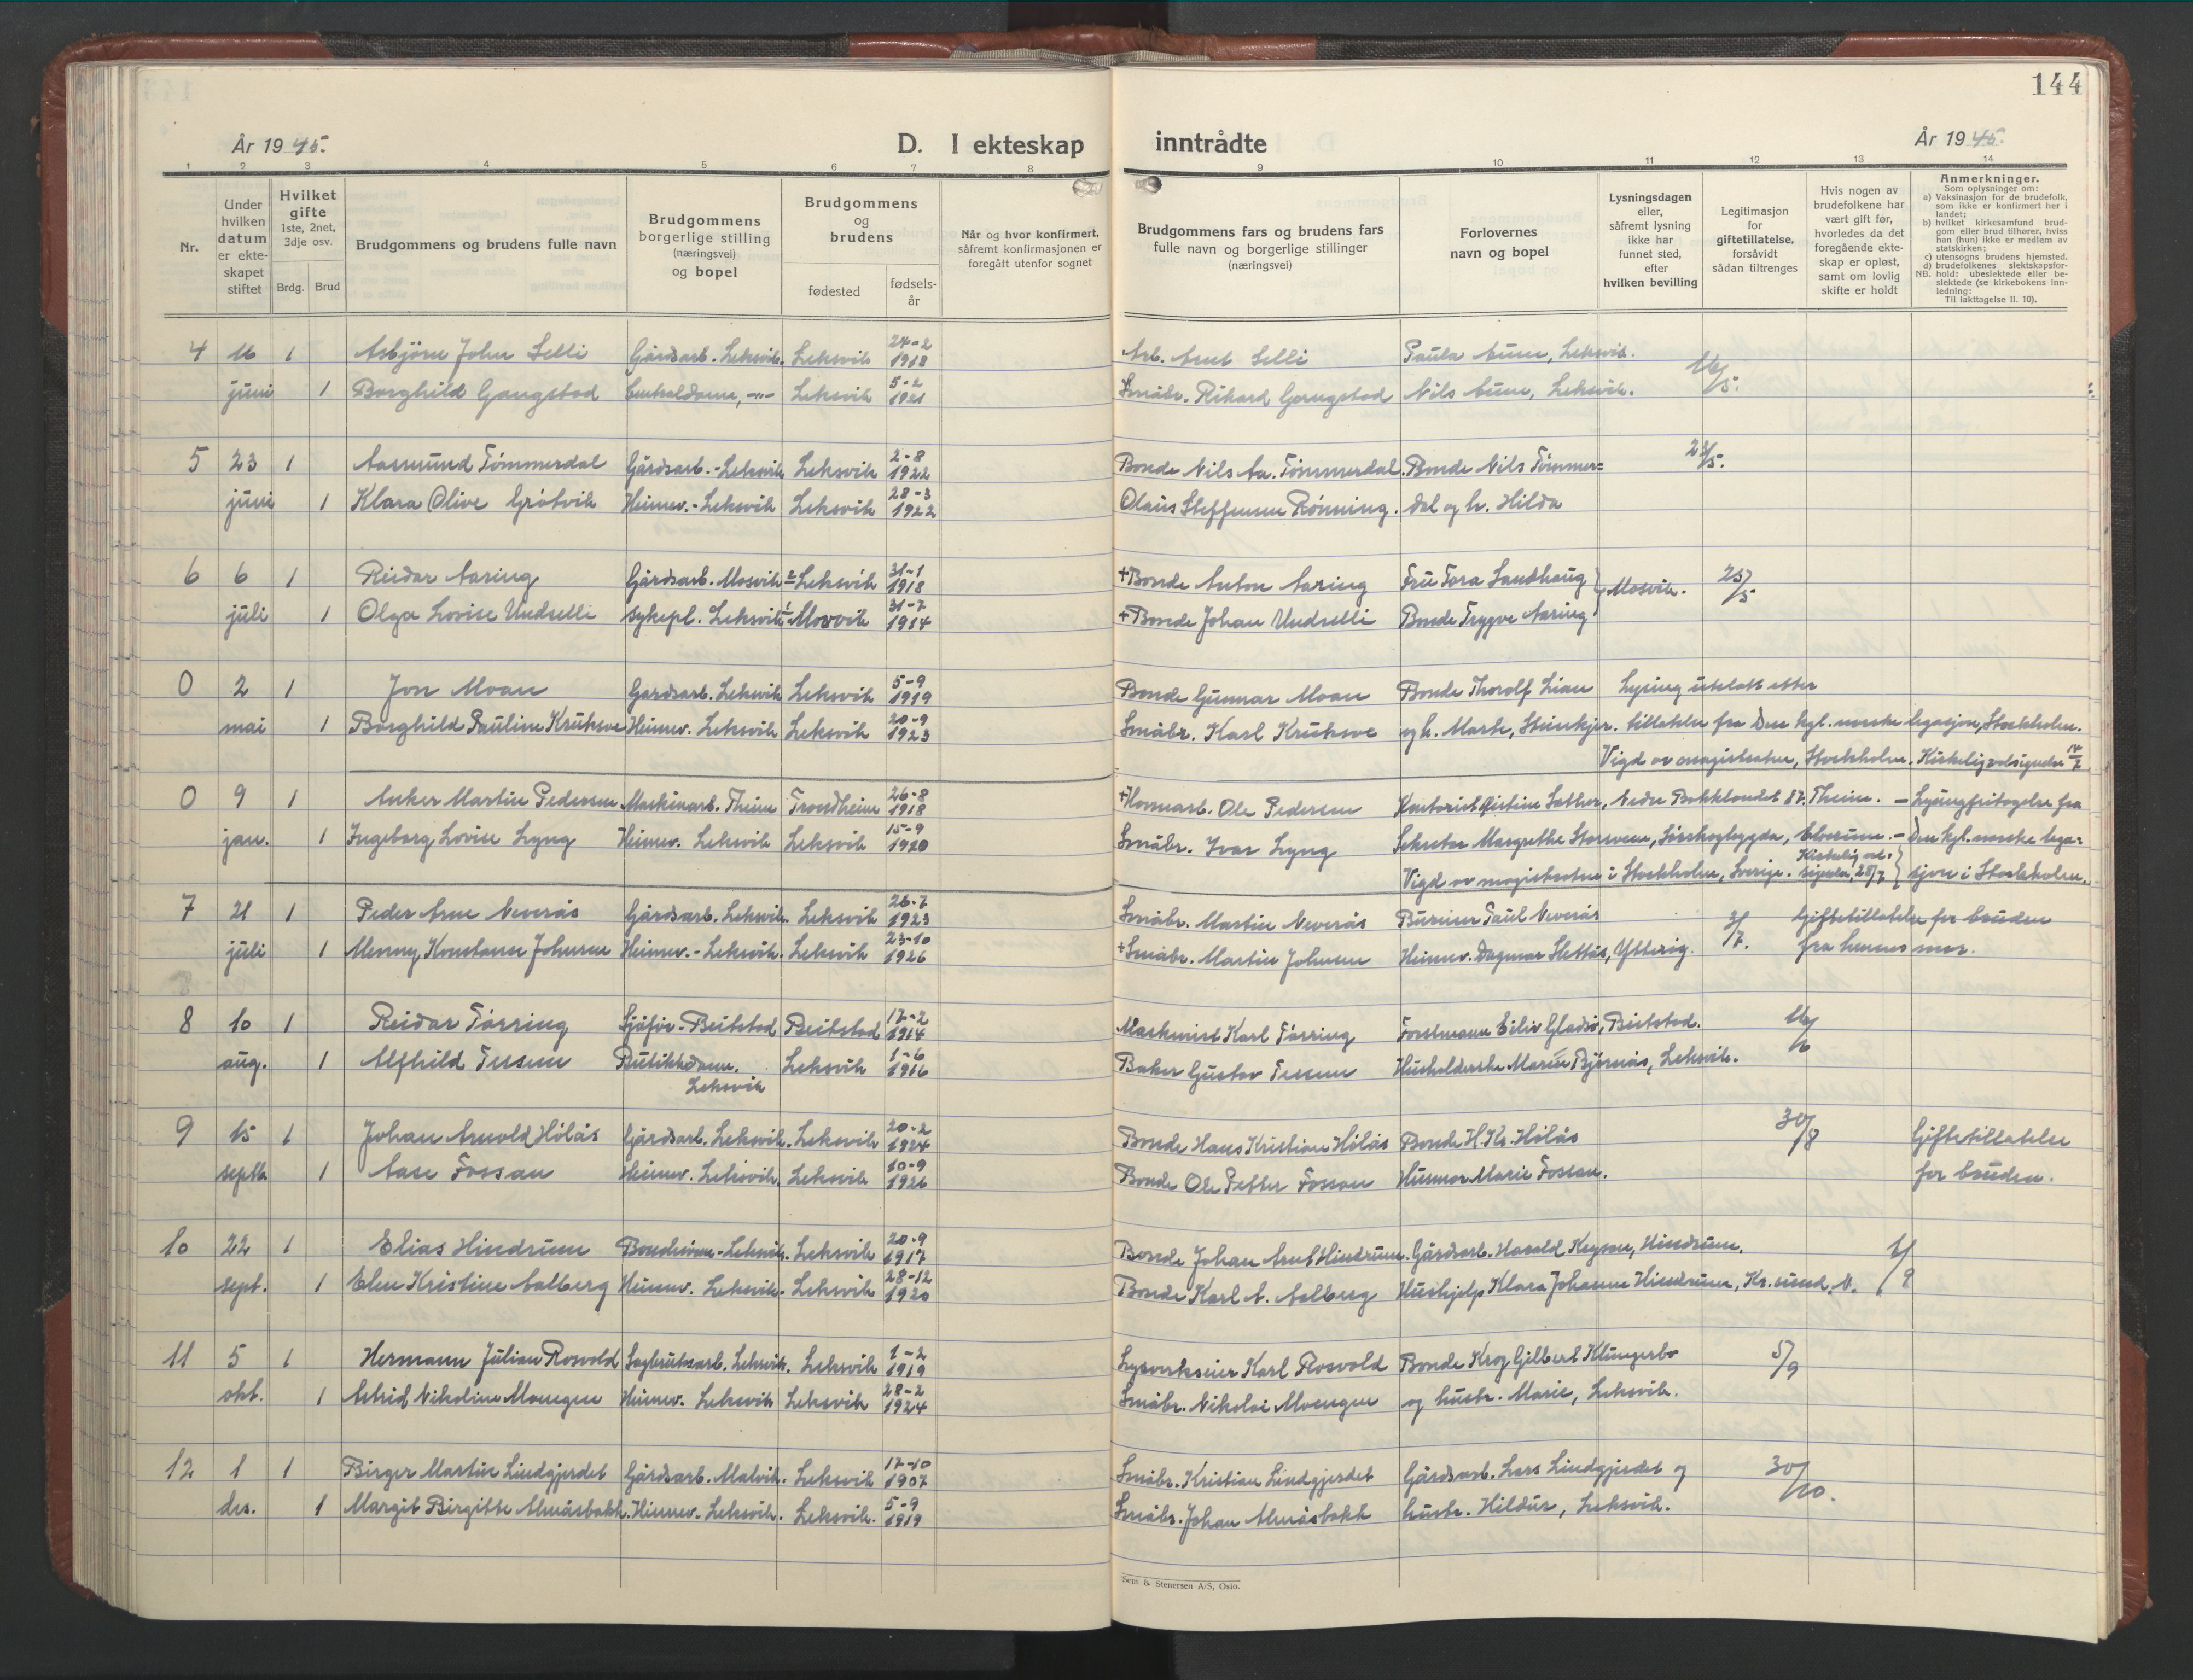 144
År 1945.
D. I ekteskap inntrådte
År 1945.
1 2 3 4 5 6 7 8 9 10 11 12 13 14
Nr.
Under hvilken datum er ekteskapet stiftet
Hvilket gifte 1ste, 2net, 3dje osv.
Brdg. Brud
Brudgommens og brudens fulle navn
Brudgommens borgerlige stilling (næringsvei) og bopel
Brudgommens og brudens
fødested
fødselsår
Når og hvor konfirmert, såfremt konfirmasjonen er foregått utenfor sognet
Brudgommens fars og brudens fars fulle navn og borgerlige stillinger (næringsvei)
Forlovernes navn og bopel
Lysningsdagen eller, såfremt lysning ikke har funnet sted, efter hvilken bevilling
Legitimasjon for giftetillatelse, forsåvidt sådan tiltrenges
Hvis nogen av brudefolkene har vært gift før, hvorledes da det foregående ekteskap er opløst, samt om lovlig skifte er holdt
Anmerkninger.
Som oplysninger om:
a) Vaksinasjon for de brudefolk, som ikke er konfirmert her i landet;
b) hvilket kirkesamfund brudgom eller brud tilhører, hviss han (hun) ikke er medlem av statskirken;
c) utensogns brudens hjemsted.
d) brudefolkenes slektskapsforhold: ubeslektede eller beslektede (se kirkebokens innledning:
NB.
Til iakttagelse II. 10).
4 16 1 Asbjörn John Selli Gårdsarb. Leksvik. Leksvik 24-2 1918 Arb. Arnt Selli Paula Aune, Leksvik. 16/5.
juni 1 Borghild Gangstad -"- Leksvik 5-2 1921 Småbr. Rikard Gangstad Nils Aune, Leksvik.
5 23 1 Aasmund Tömmerdal Gårdsarb.-Leksvik Leksvik 2-8 1922 Bonde Nils Aa. Tömmerdal. Bonde Nils Tömmer= 23/5.
juni 1 Klara Olive Grötvik Heimev.-Leksvik Leksvik 28-3 1922 Olaus Steffensen Rönning. dal og h. Hilda
6 6 1 Reidar Aaring Gårdsarb. Mosvik Leksvik 31-1 1918 +Bonde Anton Aaring Fru Tora Sandhaug } Mosvik. 25/5
juli 1 Olga Lovise Undselli Sykepl. Leksvik Mosvik 31-7 1914 +Bonde Johan Undselli Bonde Trygve Aaring
0 2 1 Jon Moan Gardsarb. Leksvik Leksvik 5-9 1919 Bonde Gunnar Moan Bonde Thorolf Lian Lysing utelatt etter
mai 1 Borghild Pauline Kruksve Heimev. Leksvik Leksvik 20-9 1923 Småbr. Karl Kruksve og h. Marte, Steinkjer. tillatelse fra Den kgl. norske legasjon, Stockholm.
Vigd av magistraten, Stockholm. Kirkelig velsignelse 14/7
0 9 1 Anker Martin Pedersen Maskinarb. Theim Trondheim 26-8 1918 +Havnarb. Ole Pedersen Kontorist Kirstine Sæther, Nedre Bakklandet 87, Theim. - Lysingfritagelse fra
jan. 1 Ingeborg Lovise Lyng Heimev. Leksvik Leksvik 15-9 1920 Småbr. Ivar Lyng Sekretær Margrethe Storsveen, Sörskogbygda, Elverum. - Den kgl. norske lega=
Vigd av magistraten i Stockholm, Sverige. Kirkelig vel= signelse, 28/7 } sjon i Stockholm.
7 21 1 Peder Arne Neverås Gårdsarb. Leksvik. Leksvik 26-7 1923 Småbr. Martin Neverås Bureiser Paul Neverås 3/7. Giftetillatelse for bruden
juli 1 Menny Konstanse Johnsen Heimev.-Leksvik. Leksvik 23-10 1926 +Småbr. Martin Johnsen Heimev. Dagmar Slettås, Ytteröy. fra hennes mor.
8 10 1 Reidar Tørring Sjåför-Beitstad Beitstad 17-2 1914 Maskinist Karl Tørring Forstmann Eiliv Gladsö, Beitstad. 16/6
aug. 1 Alfhild Tessem Butikkdame. Leksvik Leksvik 1-6 1916 Baker Gustav Tessem Husholderske Marie Björnås, Leksvik.
9 15 1 Johan Arnold Hölås Gårdsarb. Leksvik. Leksvik 20-2 1924 Bonde Hans Kristian Hölås Bonde H. Kr. Hölås 30/8 Giftetillatelse
septb. 1 Aase Fossan Heimev. Leksvik. Leksvik 10-9 1926 Bonde Ole Petter Fossan Husmor Marie Fossan. for bruden.
10 22 1 Elias Hindrum Bondesönn-Leksvik. Leksvik 20-9 1917 Bonde Johan Arnt Hindrum. Gårdsarb. Harald Keyson, Hindrum.
sept. 1 Elen Kristine Aalberg Heimev. Leksvik. Leksvik 28-12 1920 Bonde Karl A. Aalberg Hushjelp Klara Johanne Hindrum, Kr.sund N. 1/9
11 5 1 Hermann Julian Rosvold Sagbruksarb. Leksvik. Leksvik 1-2 1919 Lysverkseier Karl Rosvold Bonde Krog Gilbert Klungerbo 5/9
okt. 1 Astrid Nikoline Moengen Heimev. Leksvik Leksvik 28-2 1924 Småbr. Nikolai Moengen og hustr. Marie, Leksvik.
12 1 1 Birger Martin Lindgjerdet Gårdsarb. Malvik. Leksvik 17-10 1907 Småbr. Kristian Lindgjerdet Gårdsarb. Lars Lindgjerdet og 30/10.
des. 1 Margit Birgitte Almåsbakk. Heimev. Leksvik. Leksvik. 5-9 1919 Småbr. Johan Almåsbakk hustr. Hildur, Leksvik.
Sem & Stenersen A/S, Oslo.